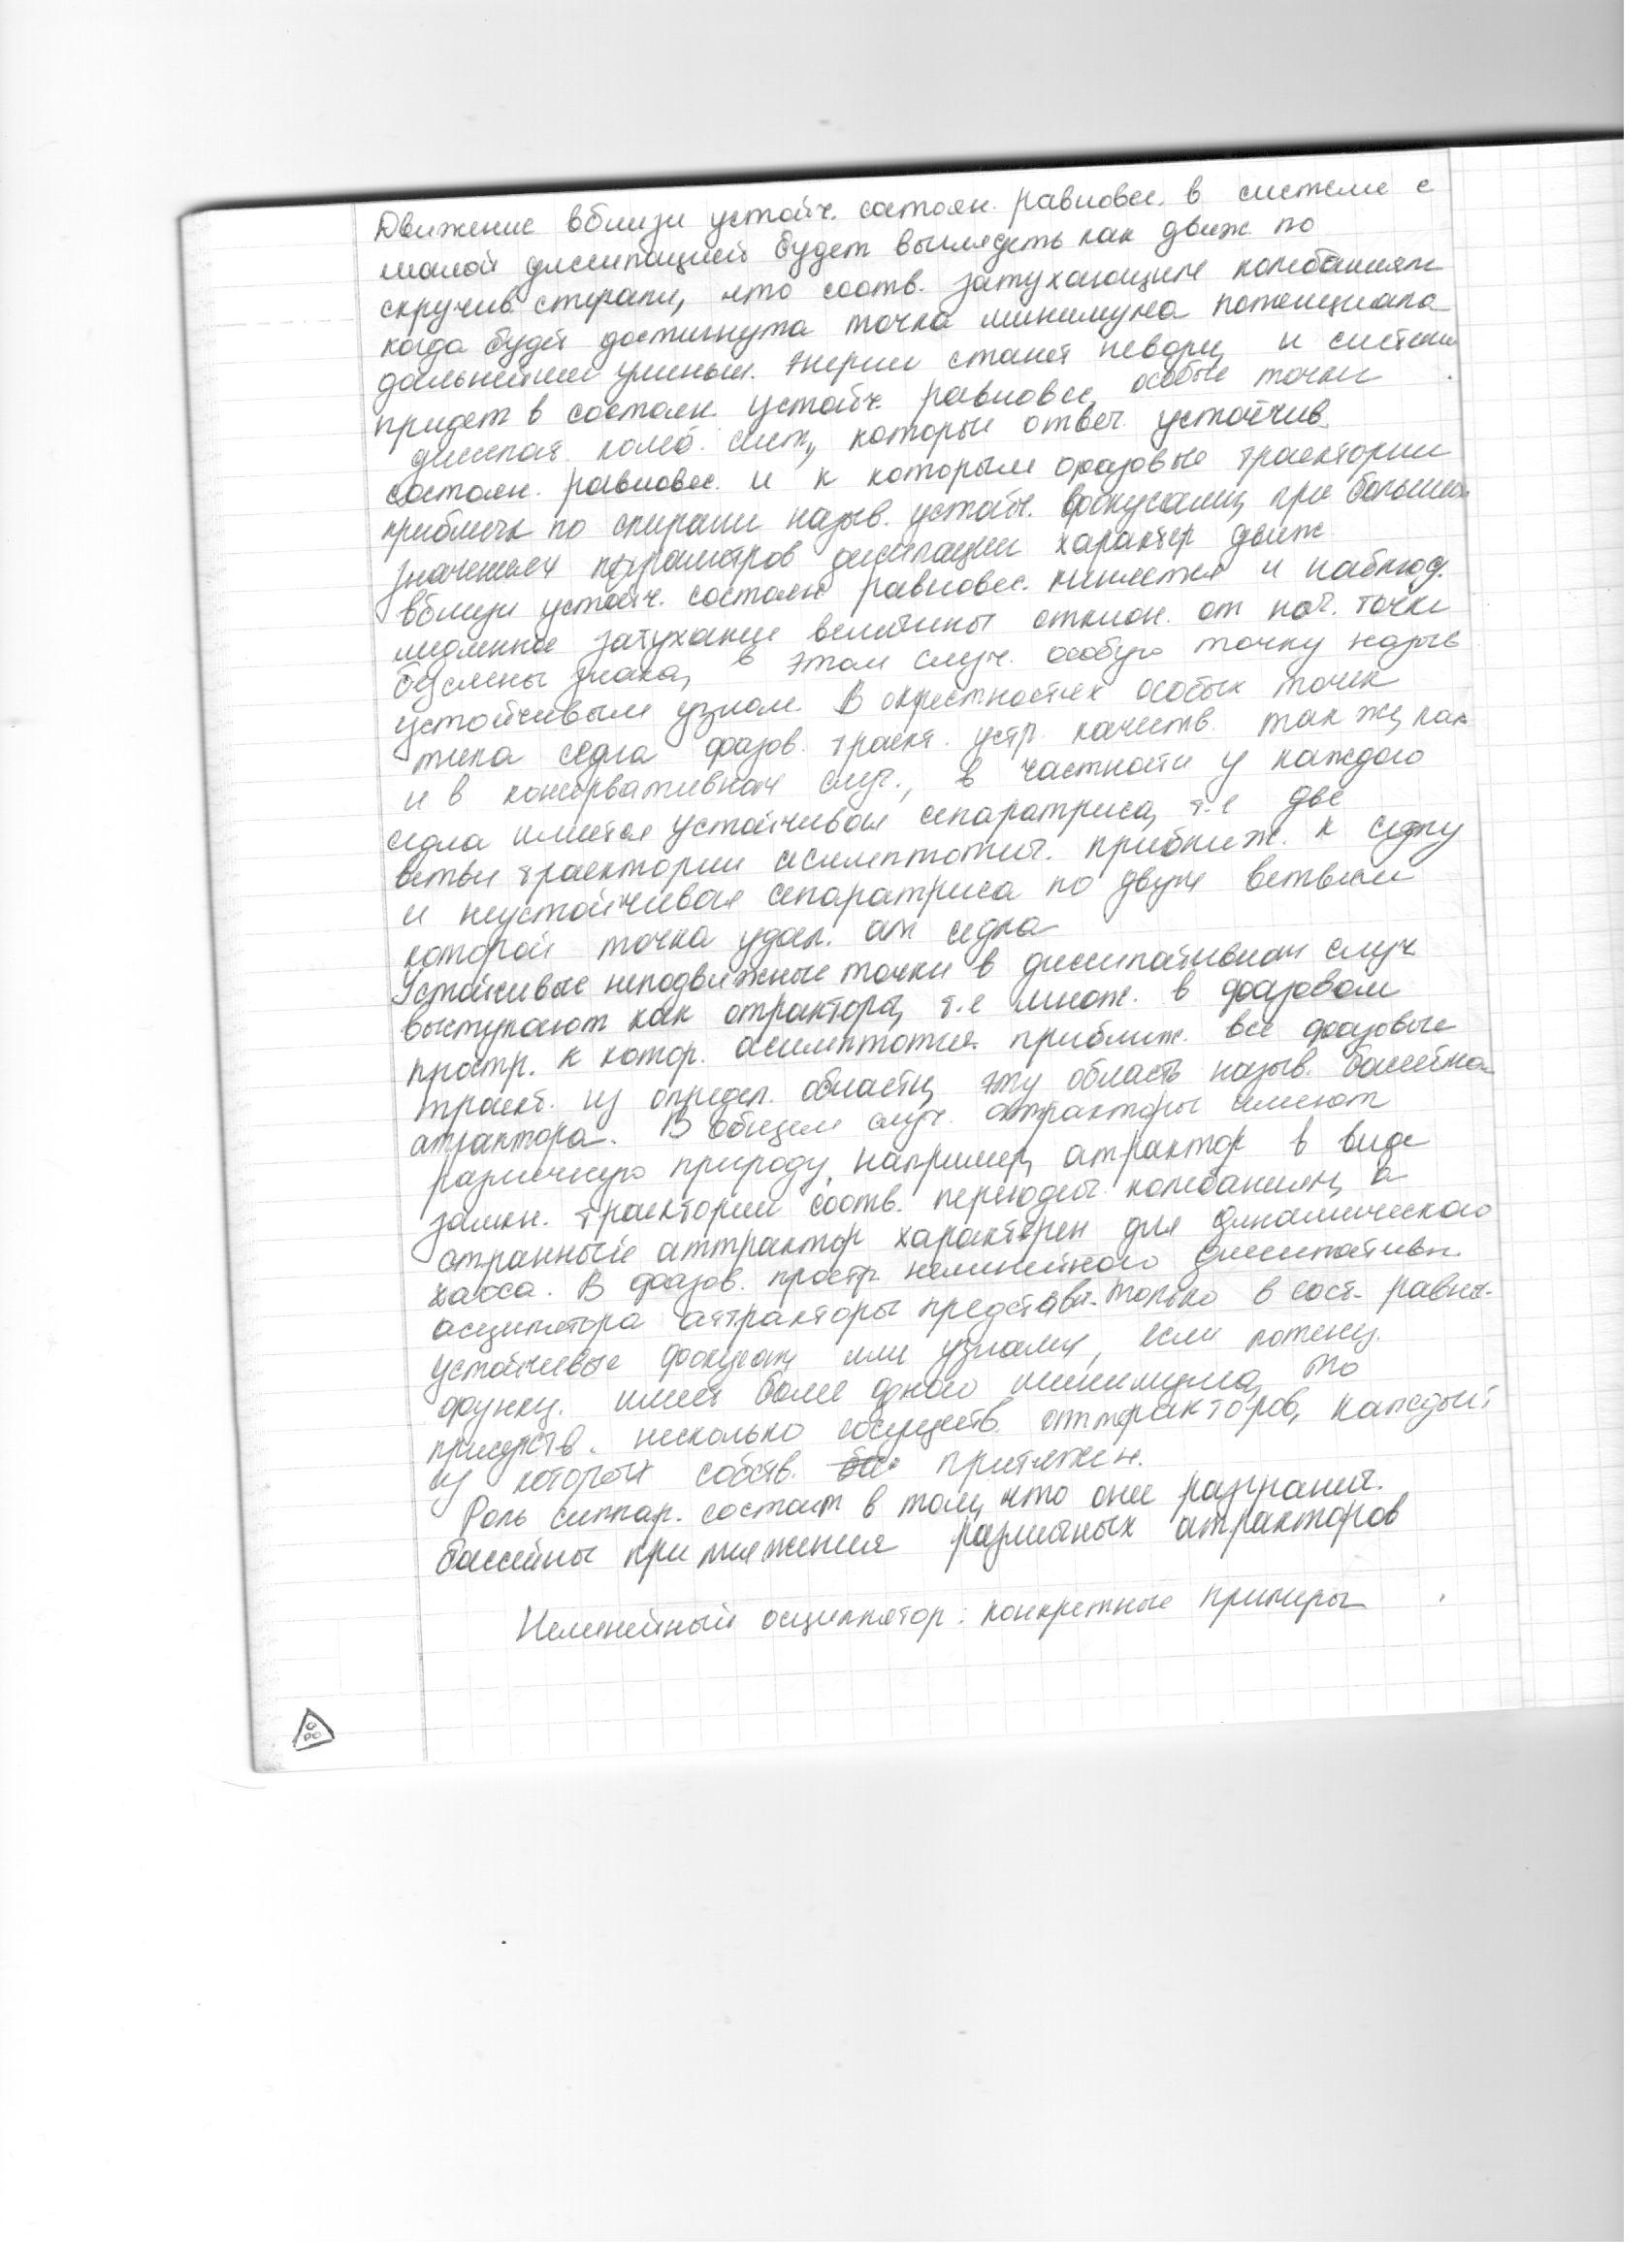 Движение вблизи устойч. состоян. равновес. в системе с
малой диссипацией будет выглядеть как движ. по
скручив. спирали, что соотв. затухающим колебаниям
когда будет достигнута точка минимума потенциала
дальнейшее уменьш. энергии станет невозм, и система
придет в состоян. устойч. равновес, особые точки
диссипат. колеб. сист., которые отвеч. устойчив.
состоян. равновес. и к которым фазовые траектории
приближ по спирали назыв. устойч. фокусами, при больших
значениях параметров диссипации характер движ.
вблизи устойч. состоян равновес. меняется и наблюд.
медленное затухание величины отклон. от нач. точки
без смены знака, в этом случ. особую точку назыв
устойчивым узлом. В окрестностях особых точек
типа седла фазов. траект. устр. качеств. так же, как
и в консервативном случ., в частности у каждого
седла имеется устойчивая сепаратриса, т.е две
ветви траектории асимптотич. приближ. к седлу
и неустойчивая сепаратриса по двум ветвям
которой точка удал. от седла
Устойчивые неподвижные точки в диссипативном случ
выступают как атрактора, т.е множ. в фазовом
простр. к котор. асимптотич. приближ. все фазовые
траект. из определ. области, эту область назыв. бассейном
атрактора. В общем случ. атракторы имеют
различную природу, например, атрактор в виде
замкн. траектории соотв. периодич. колебаниям, а
странный аттрактор характерен для динамического
хаоса. В фазов. простр. нелинейного диссипативн.
осциллятора аттракторы представл. только в сост. равнов.
устойчивые фокусом или узлами, если потенц.
функц. имеет более одного минимума, то
присутств. несколько сосуществ. аттракторов, каждый
из которых собств. притяжен.
Роль сиппар. состоит в том, что они разгранич.
бассейны притяжения различных атракторов
Нелинейный осциллятор: конкретные примеры